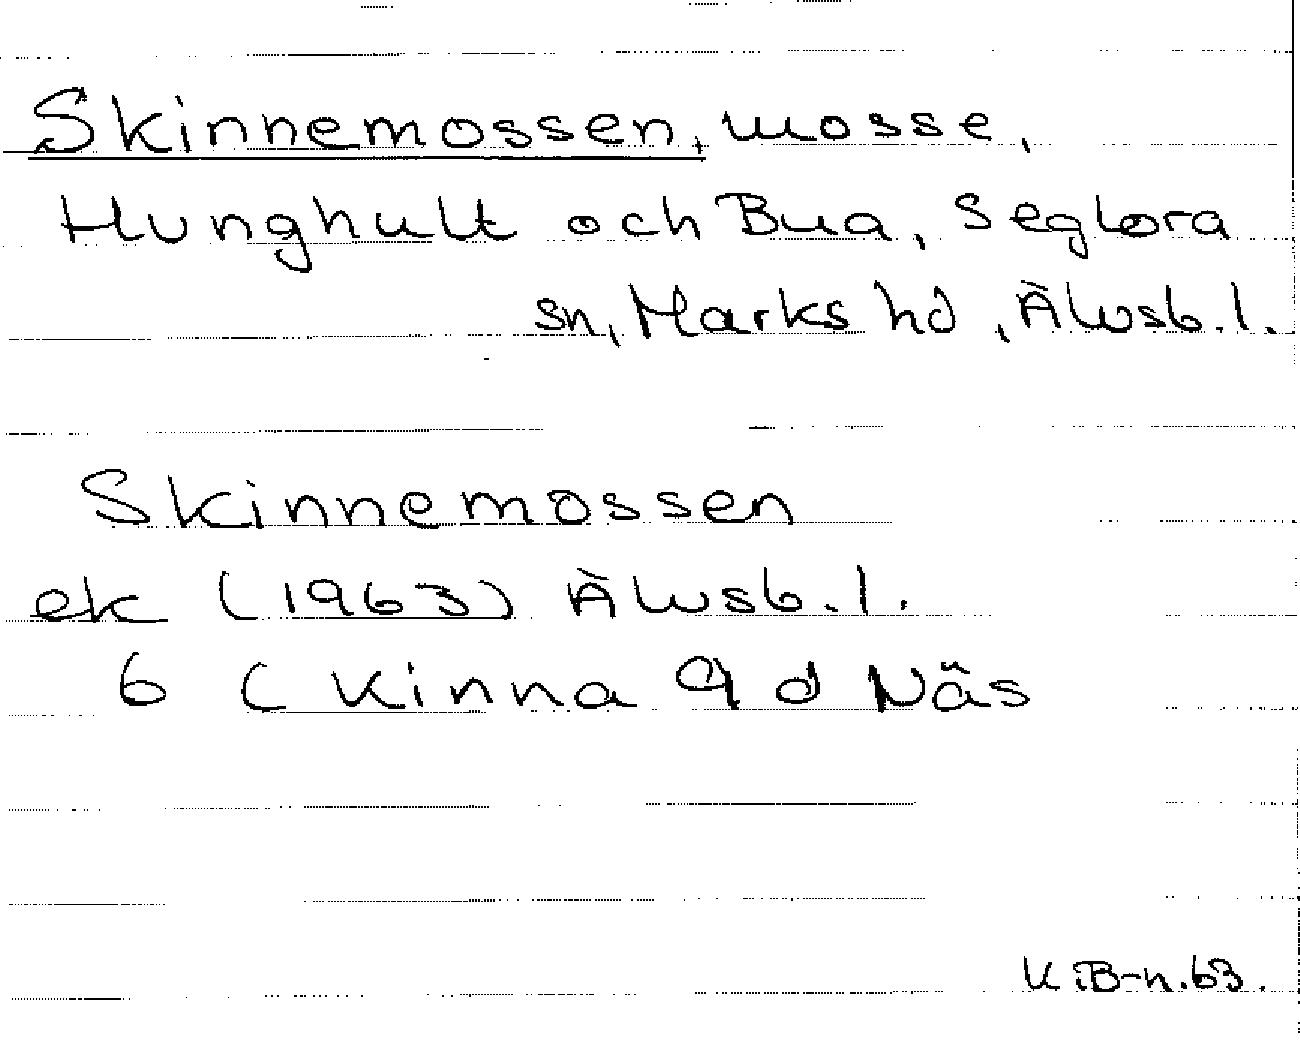 Skinnemossen, mosse,
Hunghult och Bua, Seglora
sn, Marks hd, Älvsb. l.
Skinnemossen
ek (1963) Älvsb. l.
6 (Kinna 9 d Näs
K iB-n. 63.